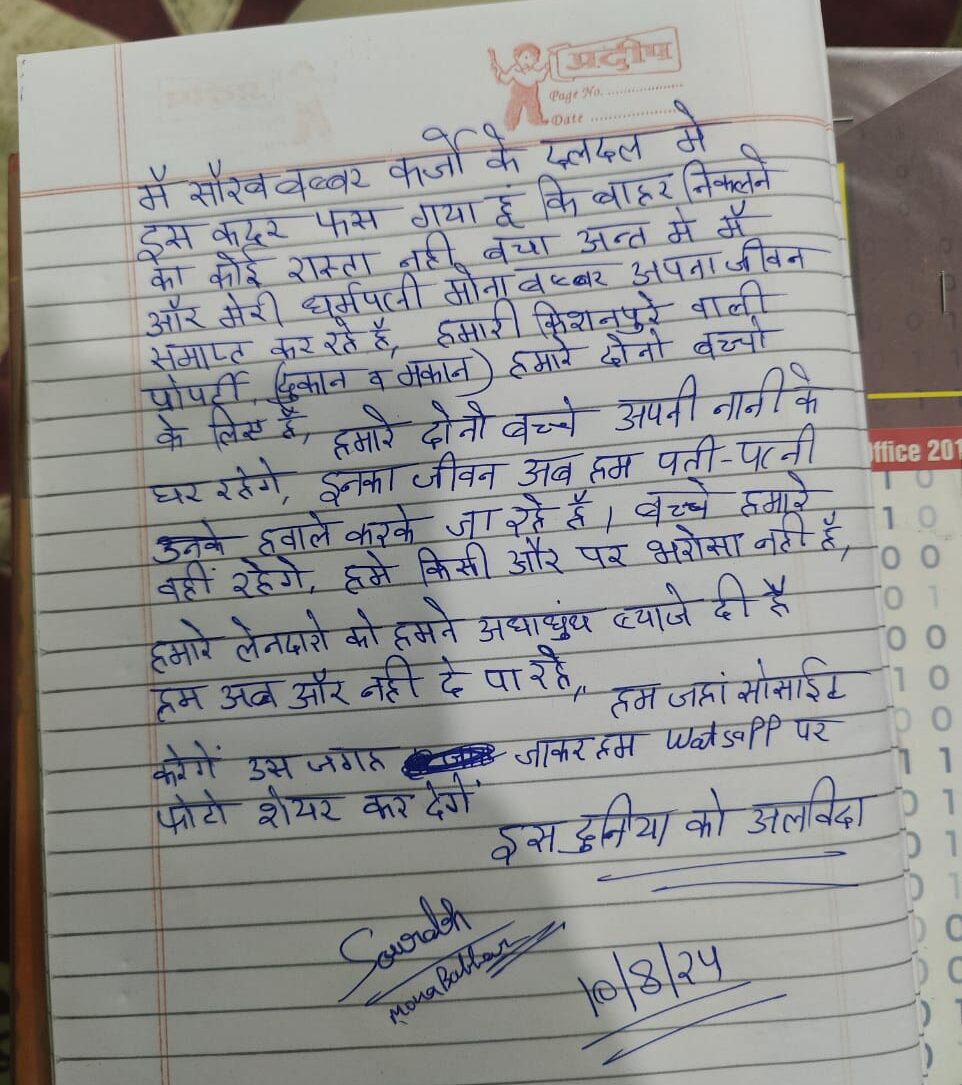 प्रदीप
Page No. ..................
Date ......................
मैं सौरव बब्बर कर्जो के दलदल मे
इस कदर फस गया हूं कि बाहर निकलने
का कोई रास्ता नही बचा अन्त मे मैं
और मेरी धर्मपत्नी मोना बब्बर अपना जीवन
समाप्त कर रहे है, हमारी किशनपुरे वाली
प्रोपर्टी, (दुकान व मकान) हमारे दोनो बच्चो
के लिए है, हमारे दोनो बच्चे अपनी नानी के
घर रहेगे, इनका जीवन अब हम पती-पत्नी
उनके हवाले करके जा रहे है। बच्चे हमारे
वहीं रहेगे, हमे किसी और पर भरोसा नही है,
हमारे लेनदारो को हमने अधाधुंध ब्याजे दी है
हम अब और नही दे पा रहे,, हम जहां सोसाईट
करेगें उस जगह जाकर हम Watsapp पर
फोटो शेयर कर देगें
इस दुनिया को अलविदा
Sourabh
Mona Babbar
10/8/24
ffice 201